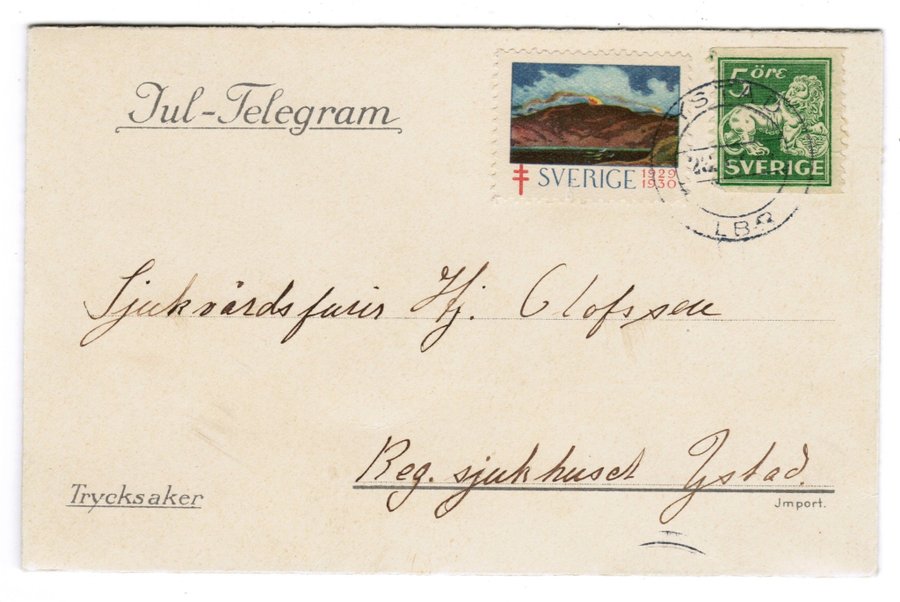 Jul-Telegram
SVERIGE 1929
1930
5 öre
SVERIGE
YSTAD
LBR
Sjukvårdsfurir Hj. Olofsson
Reg. sjukhuset Ystad.
Trycksaker
Jmport.